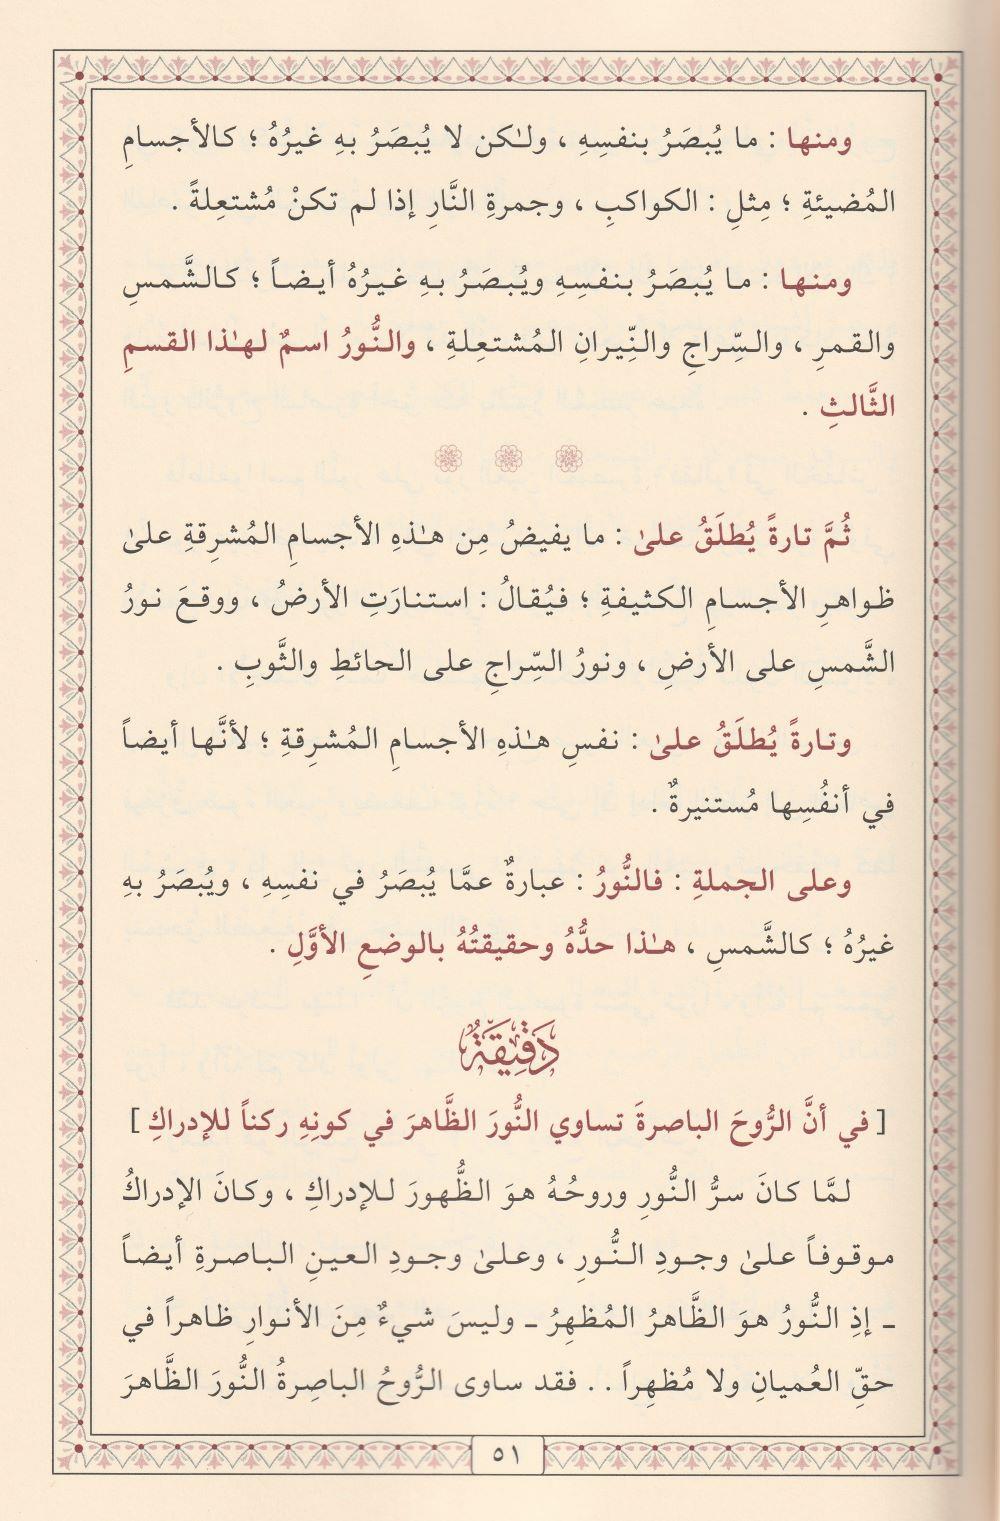 ومنها : ما يُبصَرُ بنفسِهِ ، ولـٰكن لا يُبصَرُ بهِ غيرُهُ ؛ كالأجسامِ
المُضيئةِ ؛ مِثلِ : الكواكبِ ، وجمرةِ النَّارِ إذا لم تكنْ مُشتعِلةً .
ومنها : ما يُبصَرُ بنفسِهِ ويُبصَرُ بهِ غيرُهُ أيضاً ؛ كالشَّمسِ
والقمرِ ، والسِّراجِ والنِّيرانِ المُشتعِلةِ ، والنُّورُ اسمٌ لهـٰذا القسمِ
الثَّالثِ .
ثُمَّ تارةً يُطلَقُ علىٰ : ما يفيضُ مِن هـٰذهِ الأجسامِ المُشرِقةِ علىٰ
ظواهرِ الأجسامِ الكثيفةِ ؛ فيُقالُ : استنارَتِ الأرضُ ، ووقعَ نورُ
الشَّمسِ على الأرضِ ، ونورُ السِّراجِ على الحائطِ والثَّوبِ .
وتارةً يُطلَقُ علىٰ : نفسِ هـٰذهِ الأجسامِ المُشرِقةِ ؛ لأنَّها أيضاً
في أنفُسِها مُستنيرةٌ .
وعلى الجملةِ : فالنُّورُ : عبارةٌ عمَّا يُبصَرُ في نفسِهِ ، ويُبصَرُ بهِ
غيرُهُ ؛ كالشَّمسِ ، هـٰذا حدُّهُ وحقيقتُهُ بالوضعِ الأوَّلِ .
دَقِيقَةٌ
[ في أنَّ الرُّوحَ الباصرةَ تساوي النُّورَ الظَّاهرَ في كونِهِ ركناً للإدراكِ ]
لمَّا كانَ سرُّ النُّورِ وروحُهُ هوَ الظُّهورَ للإدراكِ ، وكانَ الإدراكُ
موقوفاً علىٰ وجودِ النُّورِ ، وعلىٰ وجودِ العينِ الباصرةِ أيضاً
ـ إذِ النُّورُ هوَ الظَّاهرُ المُظهِرُ ـ وليسَ شيءٌ مِنَ الأنوارِ ظاهراً في
حقِّ العُميانِ ولا مُظهِراً . . فقد ساوى الرُّوحُ الباصِرةُ النُّورَ الظَّاهرَ
٥١